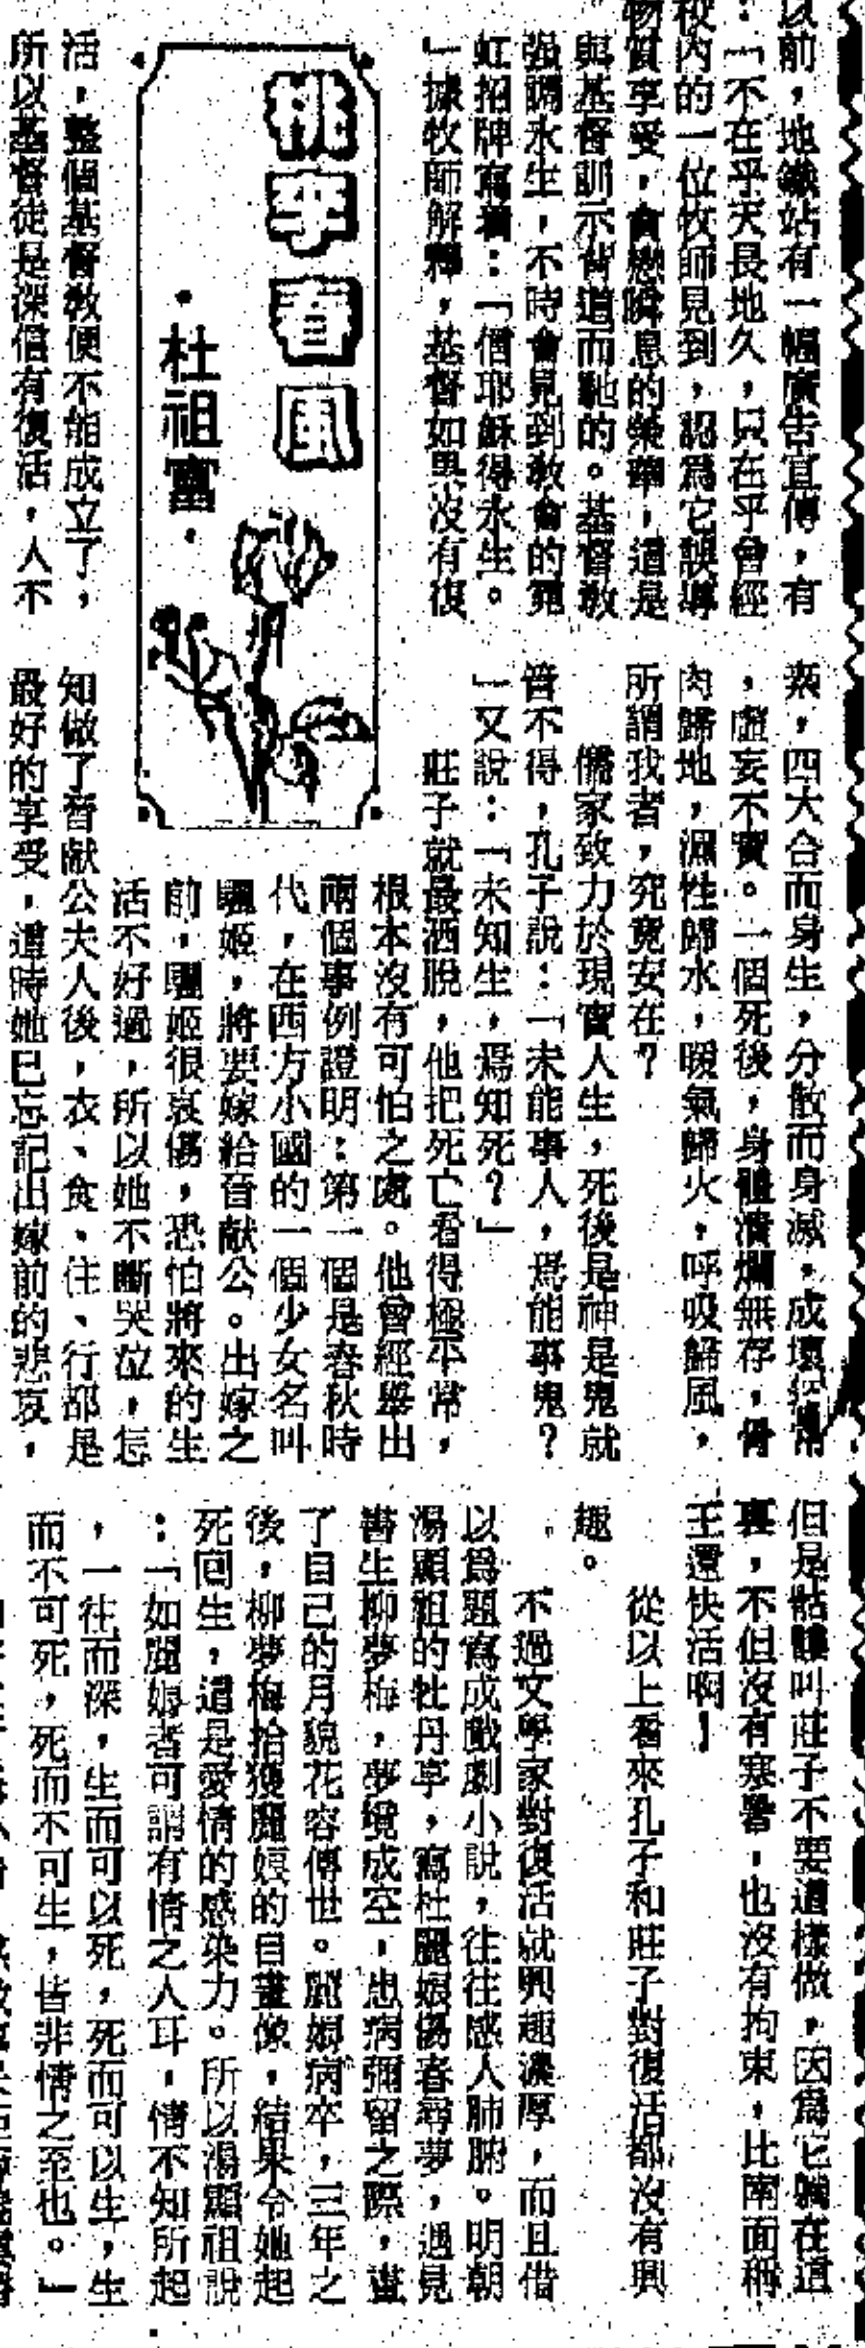 以前，地鐵站有一幅廣告宣傳，有
：「不在乎天長地久，只在乎曾經
校內的一位牧師見到，認爲它誤導
物質享受，貪戀瞬息的榮華，這是
與基督訓示背道而馳的。基督教
强調永生，不時會見到教會的霓
虹招牌寫着：「信耶穌得永生。
」據牧師解釋，基督如果沒有復
桃李春風
·杜祖富·
活，整個基督教便不能成立了，
所以基督徒是深信有復活，人不
四大合而身生，分散而身滅，成壞
，虛妄不實。一個死後，身體潰爛無存，骨
肉歸地，濕性歸水，暖氣歸火，呼吸歸風，
所謂我者，究竟安在？
儒家致力於現實人生，死後是神是鬼就
管不得，孔子說：「未能事人，焉能事鬼？
」又說：「未知生，焉知死？」
莊子就最洒脫，他把死亡看得極平常，
根本沒有可怕之處。他曾經舉出
兩個事例證明：第一個是春秋時
代，在西方小國的一個少女名叫
驪姬，將要嫁給晉獻公。出嫁之
前，驪姬很哀傷，恐怕將來的生
活不好過，所以她不斷哭泣，怎
知做了晉献公夫人後，衣、食、住、行都是
最好的享受，這時她已忘記出嫁前的悲哀，
但是骷髏叫莊子不要這樣做，因爲它躺在這
裏，不但沒有寒暑，也沒有拘束，比南面稱
王還快活啊！
從以上看來孔子和莊子對復活都沒有興
趣。
不過文學家對復活就興趣濃厚，而且借
以爲題寫成戲劇小說，往往感人肺腑。明朝
湯顯祖的牡丹亭，寫杜麗娘傷春尋夢，遇見
書生柳夢梅，夢境成空，患病彌留之際，畫
了自己的月貌花容傳世。麗娘病卒，三年之
後，柳夢梅拾獲麗娘的自畫像，結果令她起
死回生，這是愛情的感染力。所以湯顯祖說
：「如麗娘者可謂有情之人耳，情不知所起
，一往而深，生而可以死，死而可以生，生
而不可死，死而不可生，皆非情之至也。」